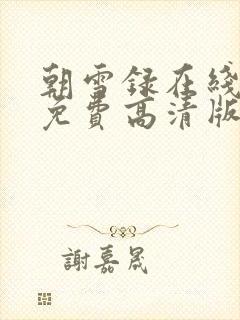 朝雪録在綫
免費高清版
謝嘉晟